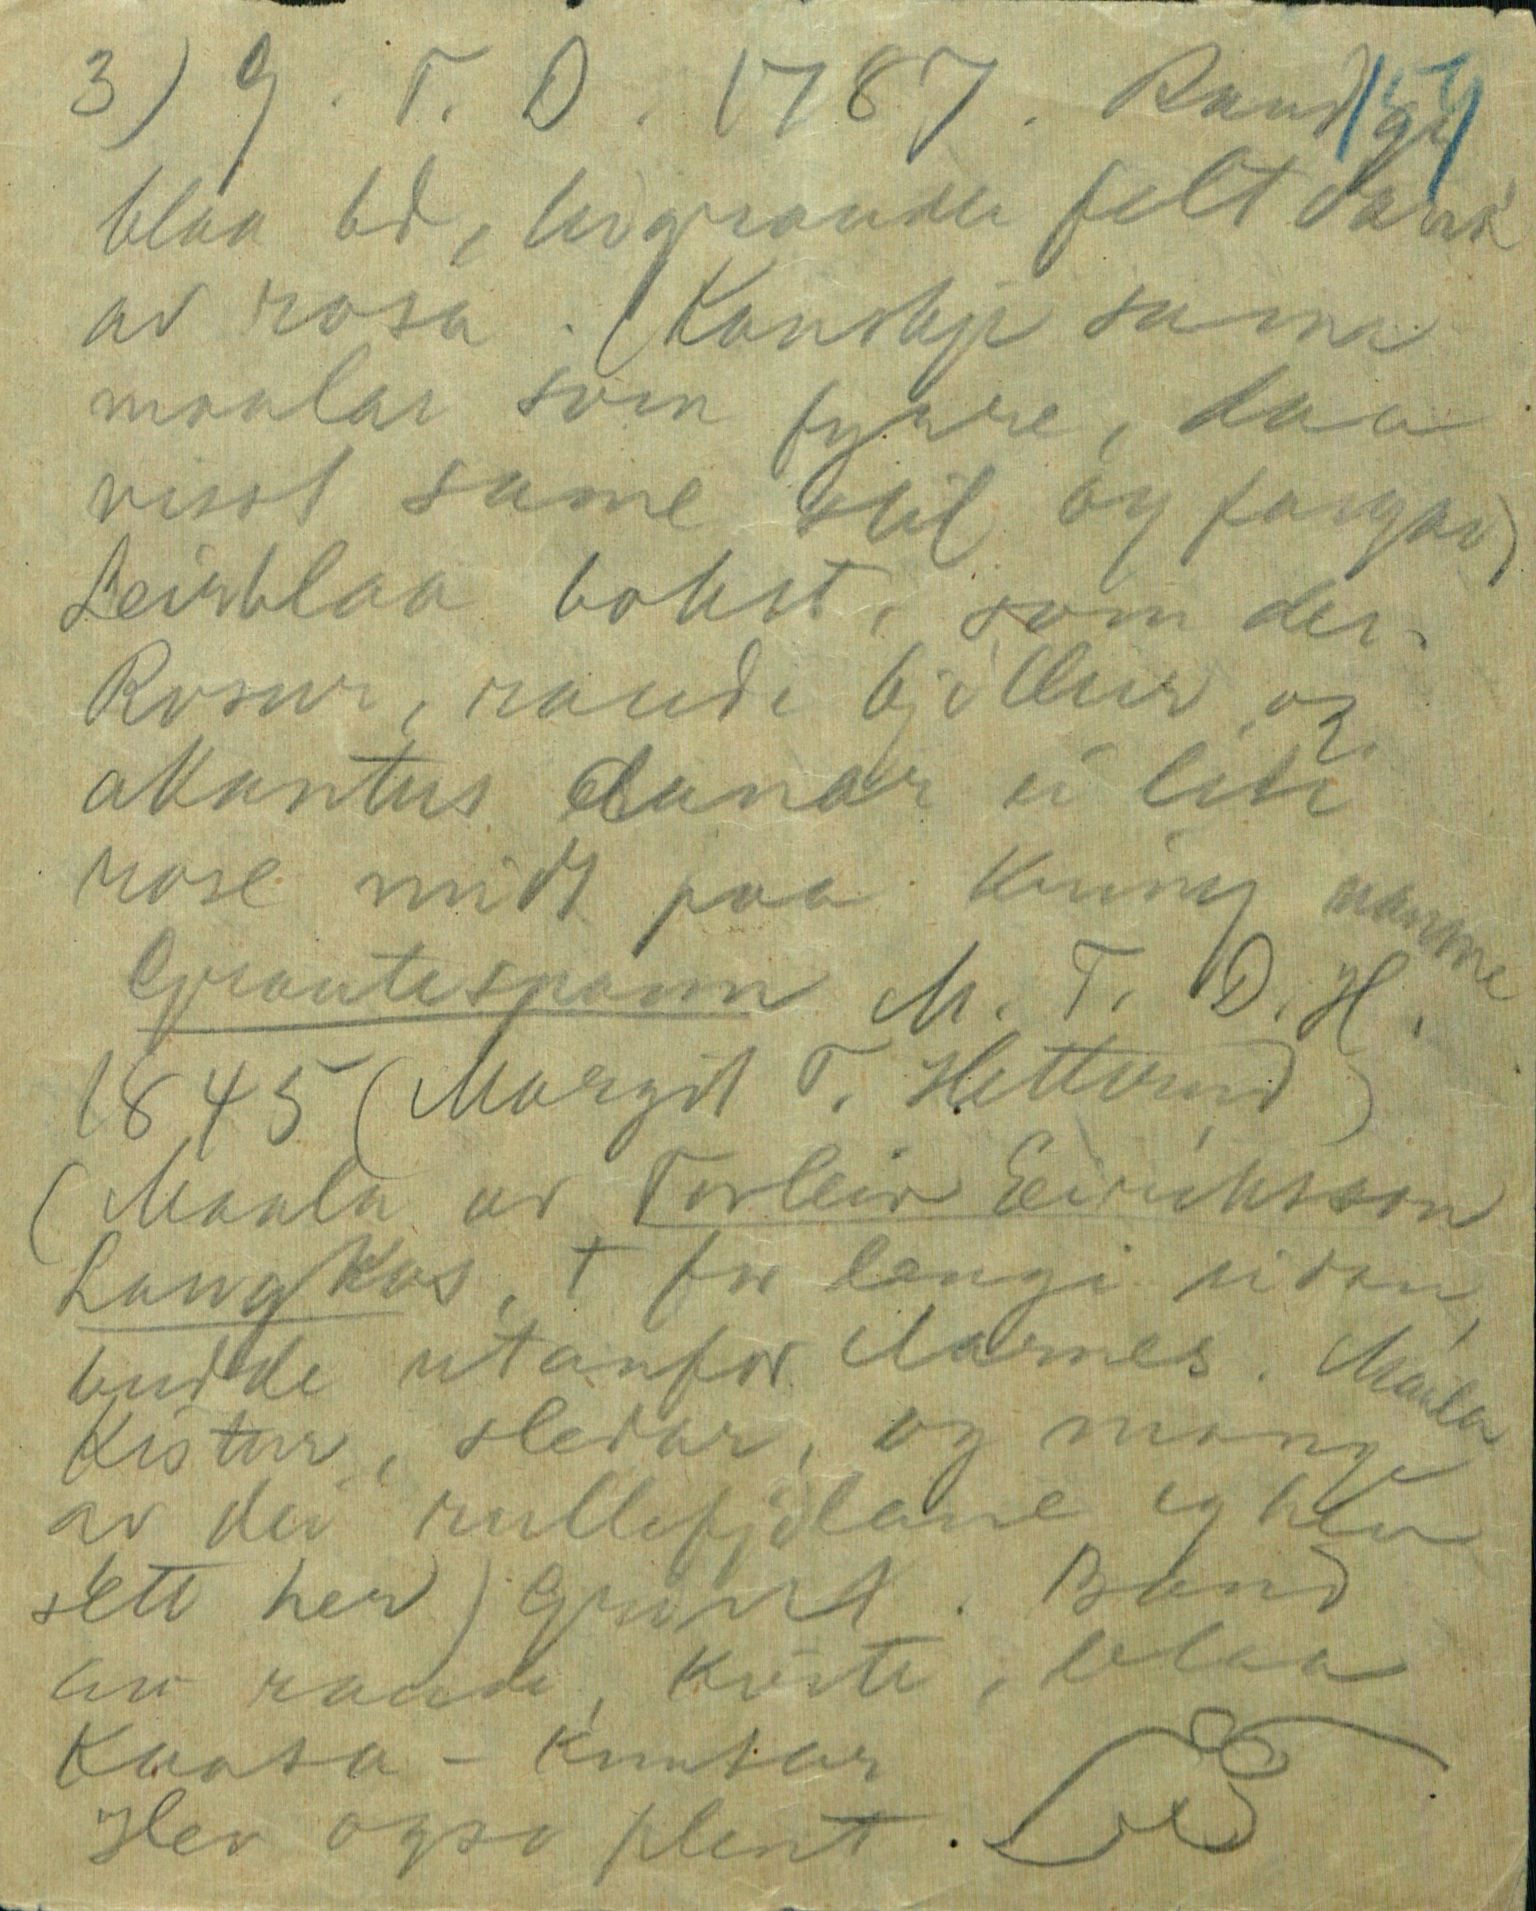 3) G. T. D. 1787. Raud
blaa bd, kvgraude felt
av rosa. (Kanskje sama
maalar som fyrre, daa
visst same stil og fargar)
Leirblaa bokst, som der.
Rosur, raude bjøllur og
akantus danar ei liti
rose midt paa. Kring namne
Grautespann M. T. D. H.
1845 (Margit T. Hetterud)
(Maala av Torleiv Eirikssøn
Langkås, † for lenge sidan,
budde utanfor Aarnes. Maala
Kistur, sledar, og mange
av dei rullefjølane eg hev
sett her) Grønt. Band
av raude, kvite, blaa
Kaasa - krusar
Hev ogso flent.